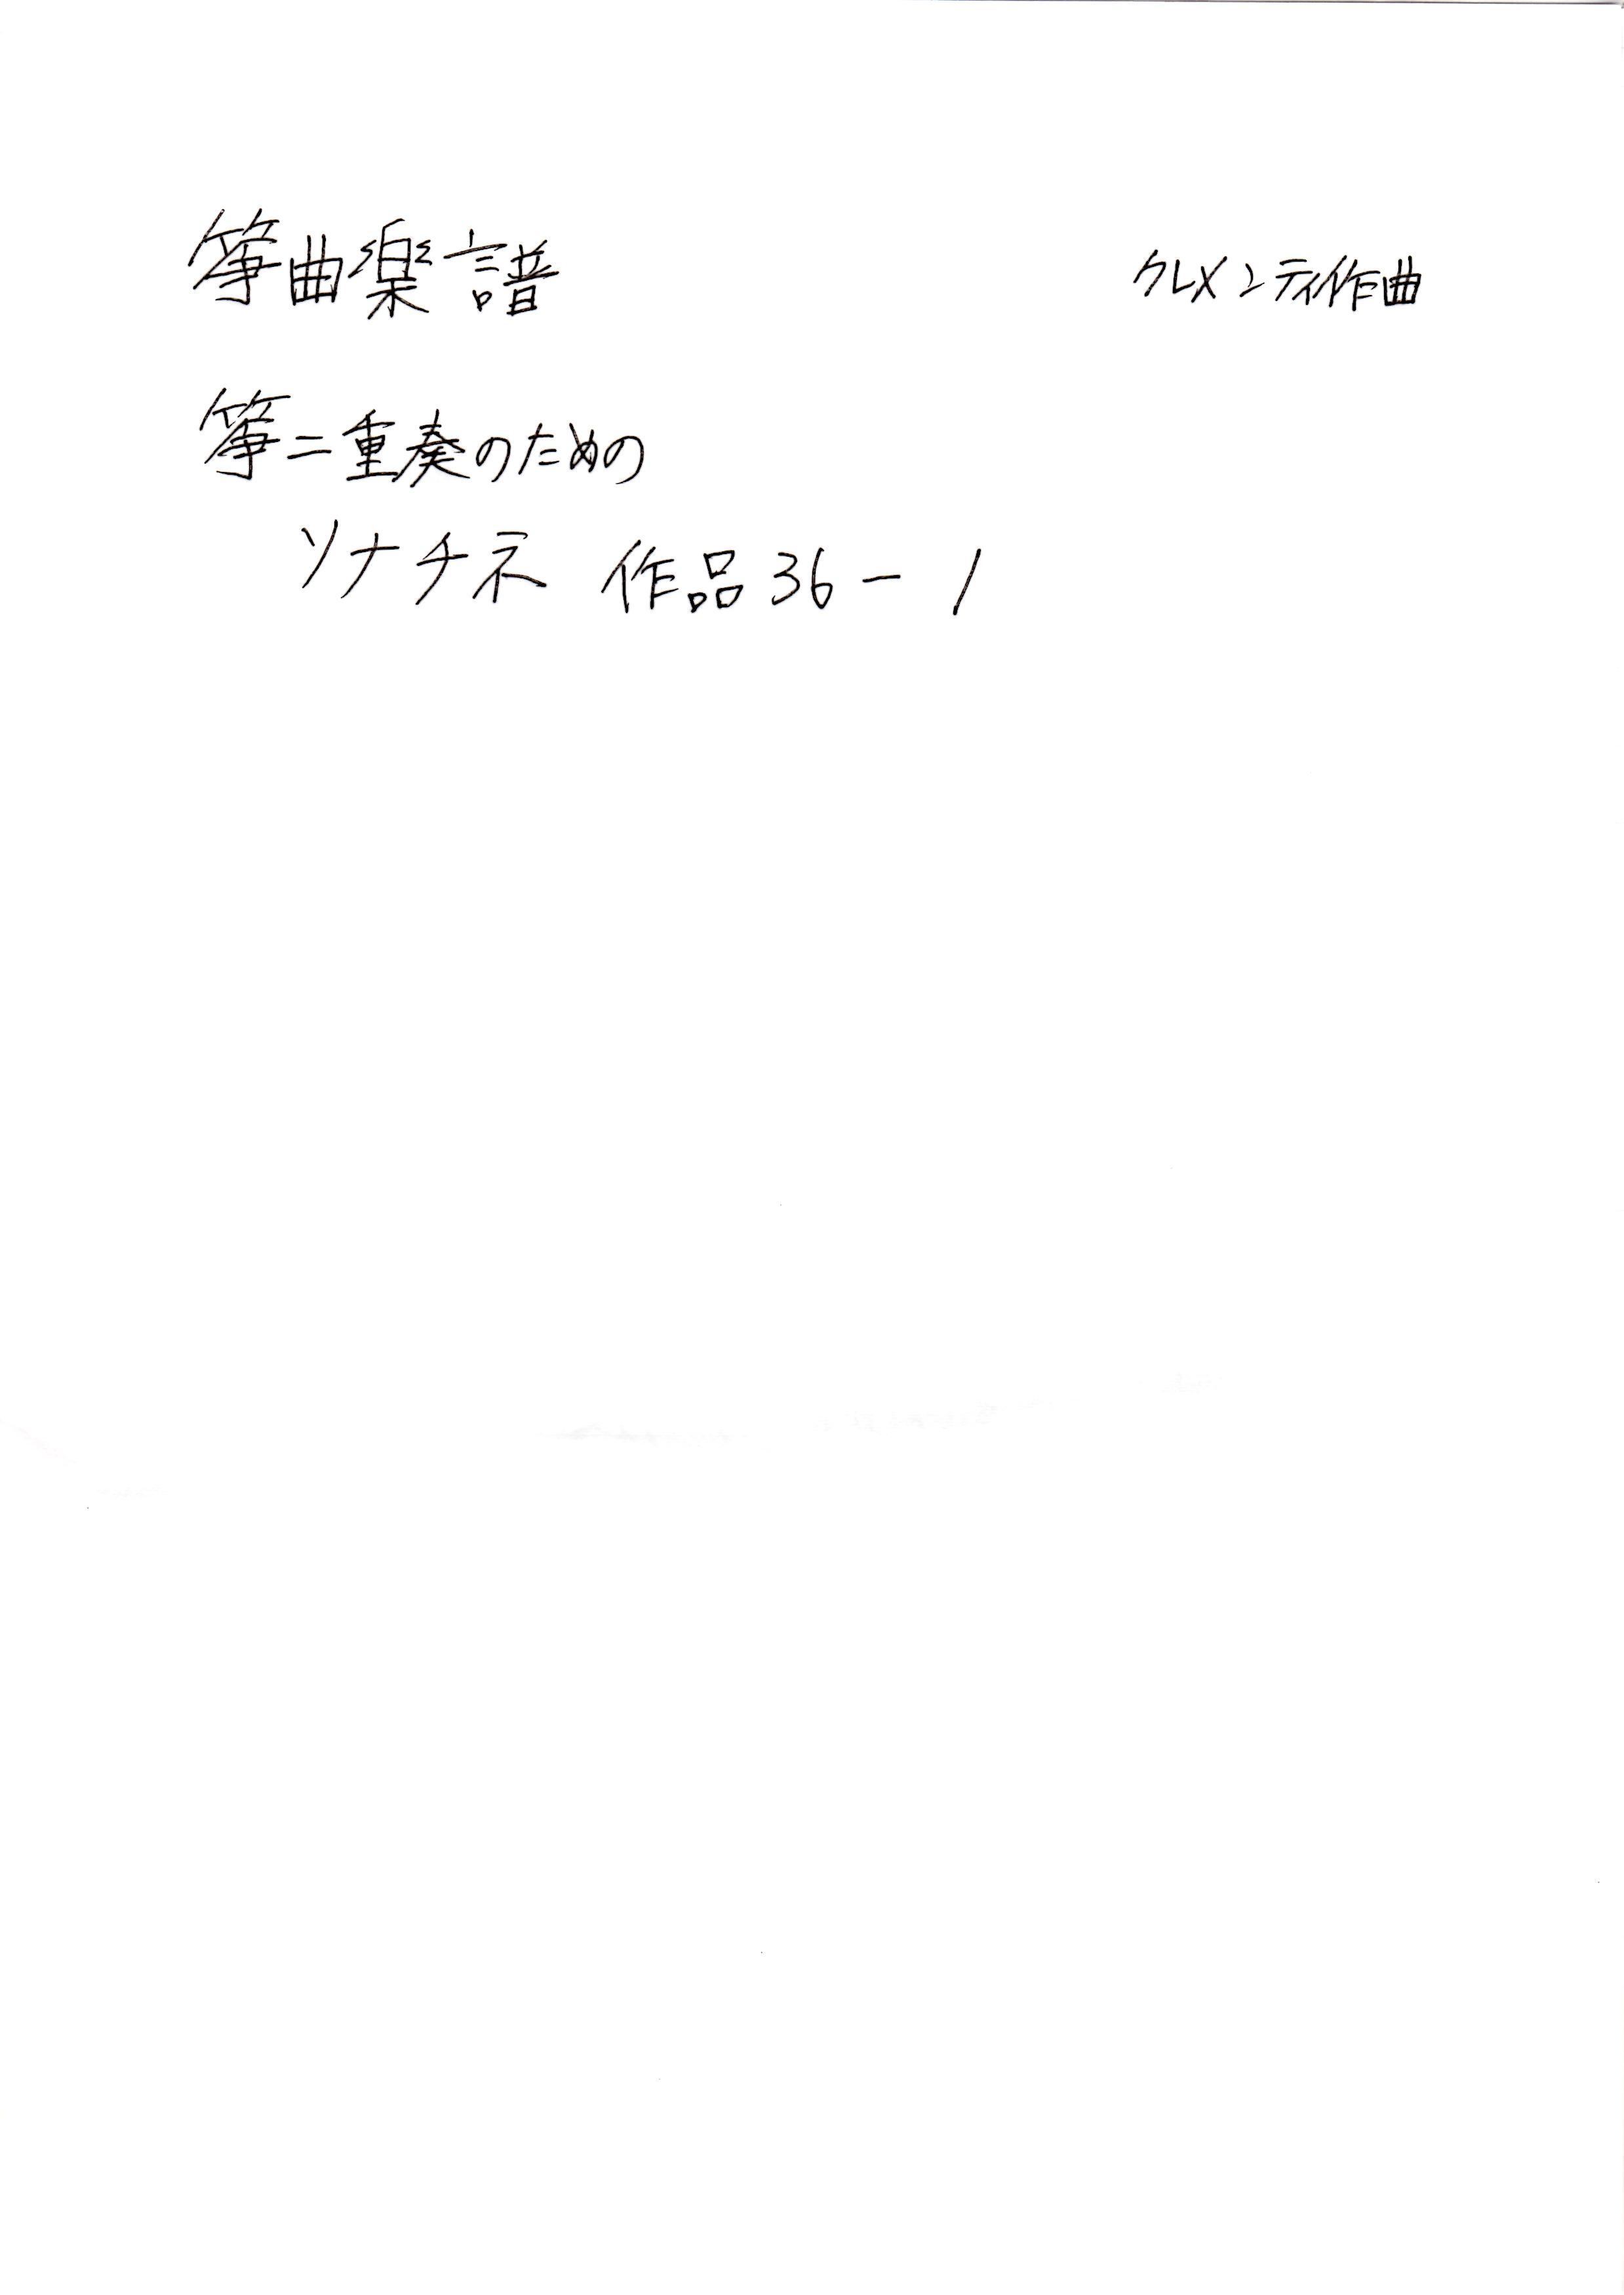 箏曲楽譜
クレメンティ作曲
箏二重奏のための
ソナチネ 作品36-1